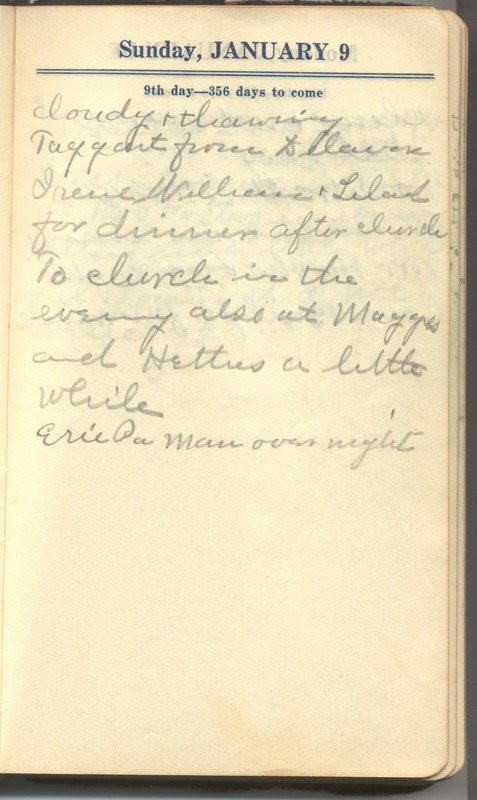 Sunday, JANUARY 9
9th day—356 days to come
cloudy & thawing
Taggart from Delaware
Irene, William & Lelah
for dinner after church
To church in the
evening also at Magges
and Hetties a little
while
Erie Pa man over night